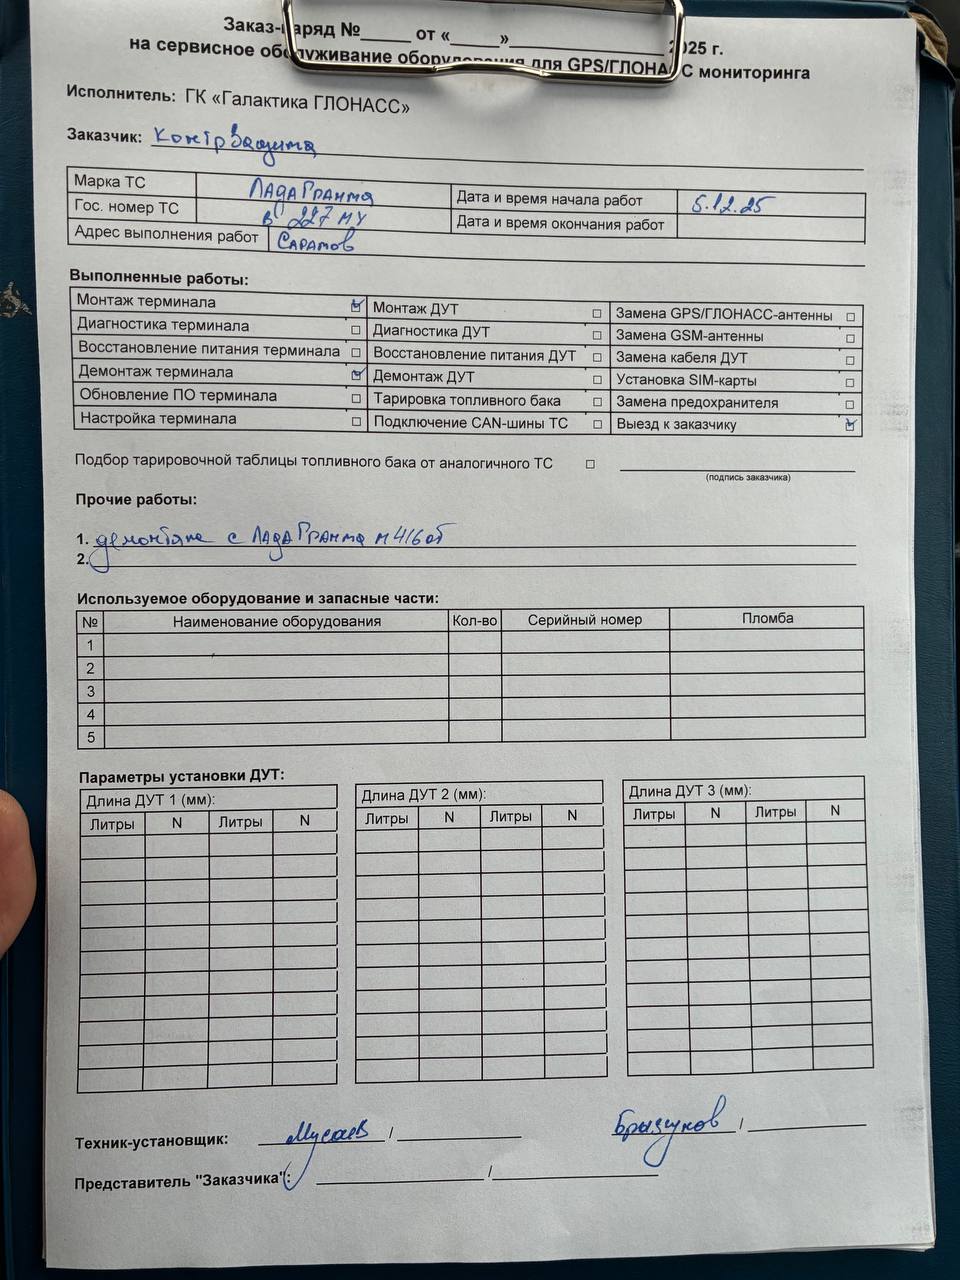 Заказ-наряд №_____ от «____»________________ 2025 г.
на сервисное обслуживание оборудования для GPS/ГЛОНАСС мониторинга
Исполнитель: ГК «Галактика ГЛОНАСС»
Заказчик: КонтрЗащита
Марка ТС Лада Гранта Дата и время начала работ 5.12.25
Гос. номер ТС в 227 МУ Дата и время окончания работ
Адрес выполнения работ Саратов
Выполненные работы:
Монтаж терминала ☑ Монтаж ДУТ □ Замена GPS/ГЛОНАСС-антенны □
Диагностика терминала □ Диагностика ДУТ □ Замена GSM-антенны □
Восстановление питания терминала □ Восстановление питания ДУТ □ Замена кабеля ДУТ □
Демонтаж терминала ☑ Демонтаж ДУТ □ Установка SIM-карты □
Обновление ПО терминала □ Тарировка топливного бака □ Замена предохранителя □
Настройка терминала □ Подключение CAN-шины ТС □ Выезд к заказчику ☑
Подбор тарировочной таблицы топливного бака от аналогичного ТС □
(подпись заказчика)
Прочие работы:
1. демонтаж с Лада Гранта м416от
2.
Используемое оборудование и запасные части:
№ Наименование оборудования Кол-во Серийный номер Пломба
1
2
3
4
5
Параметры установки ДУТ:
Длина ДУТ 1 (мм): Длина ДУТ 2 (мм): Длина ДУТ 3 (мм):
Литры N Литры N Литры N Литры N Литры N Литры N
Техник-установщик: Мусаев / Брызгунов /
Представитель "Заказчика": /